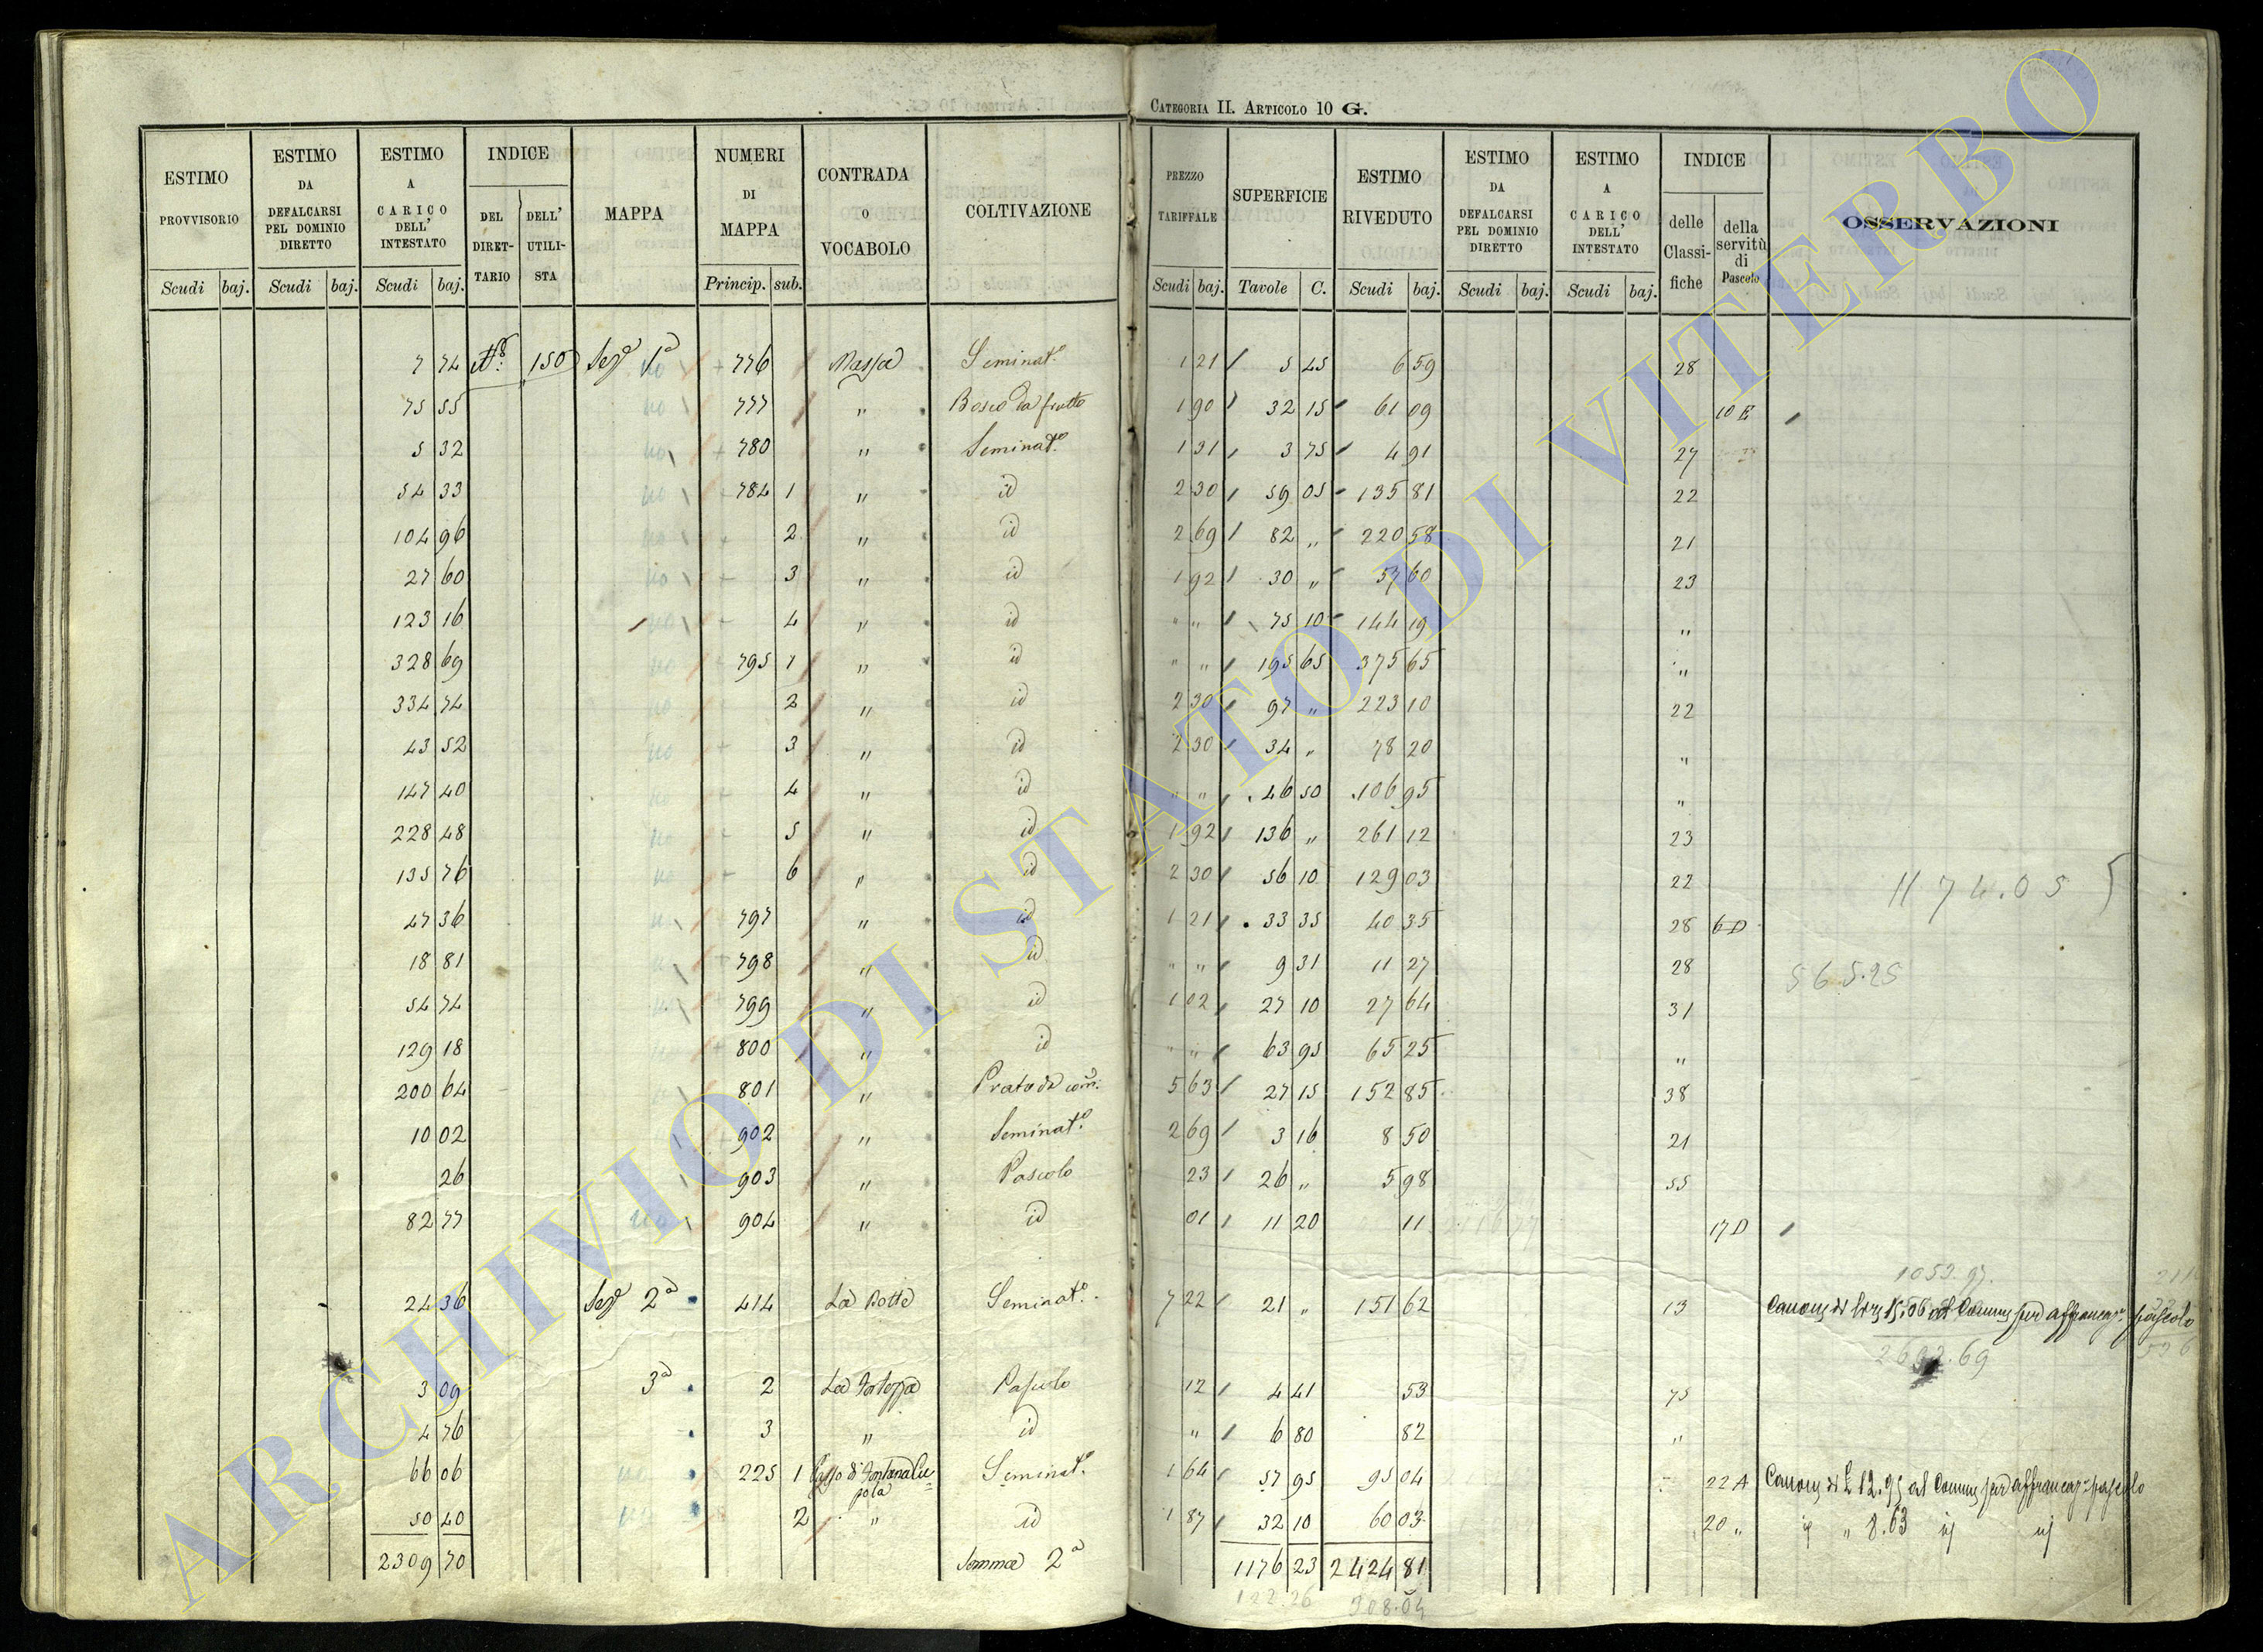 CATEGORIA II. ARTICOLO 10 G.
ESTIMO PROVVISORIO | ESTIMO DA DEFALCARSI PEL DOMINIO DIRETTO | ESTIMO A CARICO DELL' INTESTATO | INDICE DEL DIRETTARIO | DELL' UTILISTA | MAPPA | NUMERI DI MAPPA | CONTRADA O VOCABOLO | COLTIVAZIONE | PREZZO TARIFFALE | SUPERFICIE | ESTIMO RIVEDUTO | ESTIMO DA DEFALCARSI PEL DOMINIO DIRETTO | ESTIMO A CARICO DELL' INTESTATO | INDICE delle Classifiche | della servitù di Pascolo | OSSERVAZIONI
Scudi baj. Scudi baj. Scudi baj. Princip. sub. Scudi baj. Tavole C. Scudi baj. Scudi baj. Scudi baj.
7 74 150 Sezᵉ 1ª 776 Massa Seminatº 1 21 5 45 6 59 28
75 55 777 " Bosco da frutto 1 90 32 15 61 09 10 E
5 32 780 " Seminatº 1 31 3 75 4 91 27
54 33 784 1 " id 2 30 59 05 135 81 22
104 96 2 " id 2 69 82 " 220 58 21
27 60 3 " id 1 92 30 " 57 60 23
123 16 4 " id " " 75 10 144 19 "
328 69 795 1 " id " " 195 65 375 65 "
334 74 2 " id 2 30 97 " 223 10 22
43 52 3 " id 2 30 34 " 78 20 "
147 40 4 " id " " 46 50 106 95 "
228 48 5 " id 1 92 136 " 261 12 23
135 76 6 " id 2 30 56 10 129 03 22
1174.05
47 36 797 " id 1 21 33 35 40 35 28 6 D
18 81 798 " id " " 9 31 11 27 28
565.25
54 74 799 " id 1 02 27 10 27 64 31
129 18 800 " id " " 63 95 65 25 "
200 64 801 " Prato da com: 5 63 27 15 152 85 38
10 02 902 " Seminatº 2 69 3 16 8 50 21
26 903 " Pascolo 23 26 " 5 98 55
82 77 904 " id 01 11 20 11 17 D
24 36 Sezᵉ 2ª 414 La Botte Seminatº 7 22 21 " 151 62 13 Canone di lire 15,06 al Comune per affrancazᵉ pascolo
3 09 3ª 2 La Fortezza Pascolo 12 4 41 53 75
4 76 3 " id " 6 80 82 "
66 06 225 1 Poggio di Fontana Cupola Seminatº 1 64 57 95 95 04 22 A Canone di £ 12.95 al Comune per affrancazᵉ pascolo
50 40 2 " id 1 87 32 10 60 03 20 " id " 8.63 id id
2309 70 Somma 2ª 1176 23 2424 81
122.26 908.04
ARCHIVIO DI STATO DI VITERBO